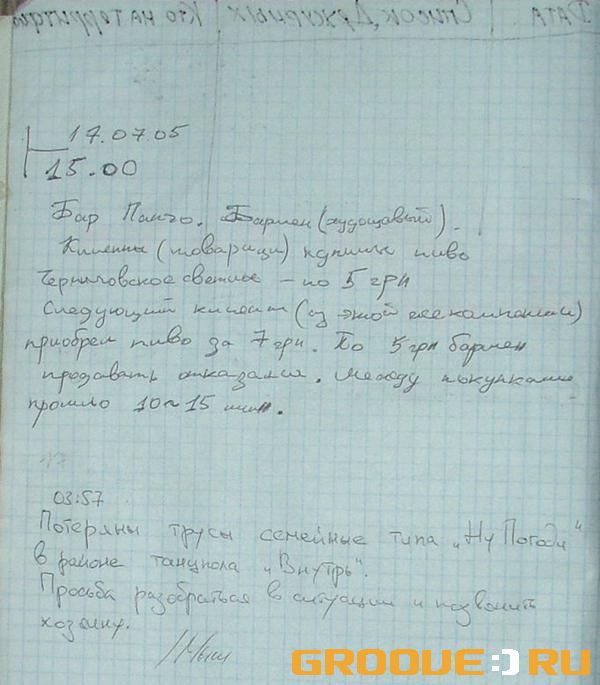 Дата | Список Дежурных | Кто на территории
17.07.05
15.00
Бар Панчо. Бармен (худощавый).
Клиенты (товарищи) купили пиво
Черниговское светлое – по 5 грн
Следующий клиент (из этой же компании)
приобрел пиво за 7 грн. По 5 грн бармен
продавать отказался. Между покупками
прошло 10~15 мин.
03:57
Потеряны трусы семейные типа „Ну Погоди"
в районе танцпола „Внутрь".
Просьба разобраться в ситуации и позвонить
хозяину.
GROOVE:)RU